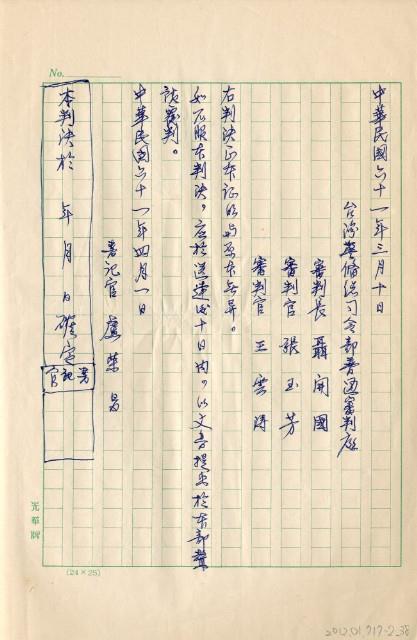 No.
中華民國六十一年三月十日
台灣警備總司令部普通審判庭
審判長 聶開國
審判官 張玉芳
審判官 王雲濤
右判決正本証明與原本無異。
如不服本判決，應於送達後十日內，以文書提出於本部聲
請覆判。
中華民國六十一年四月一日
書記官 盧榮昌
本判決於 年 月 日確定
書記官
光華牌
(24×25)
2012.01.717-2_38